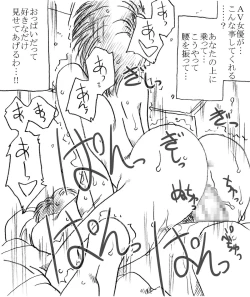 AV女優が…
こんな事してくれる
………?
あなたの上に
乗って…
こうやって
腰を振って…
おっぱいだって
好きなだけ
見せてあげるわ…!
あっ
あっ
あっ
あ〜♡
ぎしっ
ぎしっ
ぎしっ
ぱんっ
ぱんっ
ぱんっ
ぱんっ